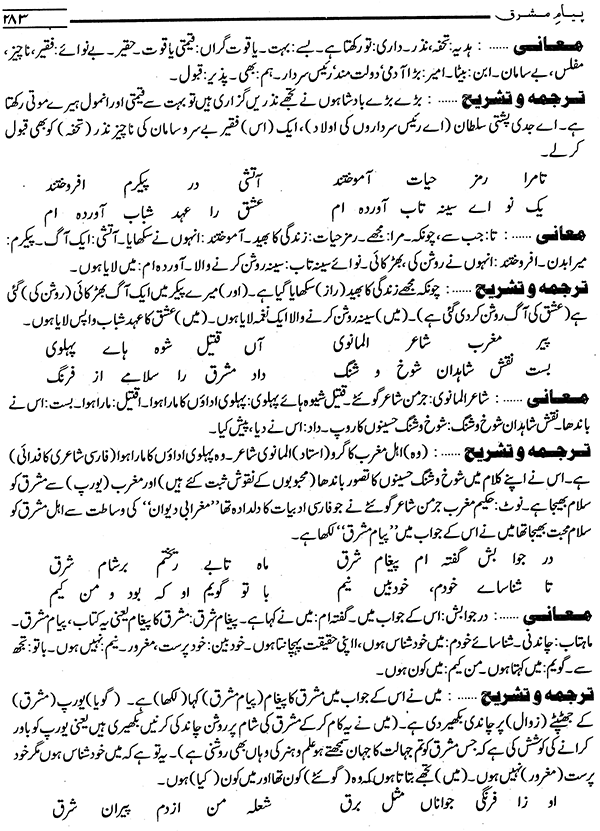 پیامِ مشرق ۲۸۳
معانی ...... : ہدیہ: تحفہ، نذر۔ داری: تو رکھتا ہے۔ بسے: بہت۔ یاقوت گراں: قیمتی یاقوت۔ حقیر۔ بے نوائے: فقیر، ناچیز،
مفلس، بے سامان۔ ابن: بیٹا۔ امیر: بڑا آدمی، دولت مند، رئیس سردار۔ ہم: بھی۔ پذیر: قبول۔
ترجمہ و تشریح ...... : بڑے بڑے بادشاہوں نے تجھے نذریں گزاری ہیں تو بہت سے قیمتی اور انمول ہیرے موتی رکھتا
ہے۔ اے جدی پشتی سلطان (اے رئیس سرداروں کی اولاد)، ایک (اس) فقیر بے سرو سامان کی ناچیز نذر (تحفہ) کو بھی قبول
کر لے۔
تا مرا رمز حیات آموختند آتشی در پیکرم افروختند
یک نو اے سینہ تاب آوردہ ام عشق را عہد شباب آوردہ ام
معانی ...... : تا: جب سے، چونکہ۔ مرا: مجھے۔ رمز حیات: زندگی کا بھید۔ آموختند: انہوں نے سکھایا۔ آتشی: ایک آگ۔ پیکرم:
میرا بدن۔ افروختند: انہوں نے روشن کی، بھڑکائی۔ نوائے سینہ تاب: سینہ روشن کرنے والا۔ آوردہ ام: میں لایا ہوں۔
ترجمہ و تشریح ...... : چونکہ مجھے زندگی کا بھید (راز) سکھایا گیا ہے۔ (اور) میرے پیکر میں ایک آگ بھڑکائی (روشن کی) گئی
ہے (عشق کی آگ روشن کر دی گئی ہے)۔ (میں) سینہ روشن کرنے والا ایک نغمہ لایا ہوں۔ (میں) عشق کا عہد شباب واپس لایا ہوں۔
پیر مغرب شاعر المانوی آں قتیل شوہ ہاے پہلوی
بست نقش شاہدان شوخ و شنگ داد مشرق را سلامے از فرنگ
معانی ...... : شاعر المانوی: جرمن شاعر گوئٹے۔ قتیل شیوہ ہائے پہلوی: پہلوی اداؤں کا مارا ہوا۔ قتیل: مارا ہوا۔ بست: اس نے
باندھا۔ نقش شاہدان شوخ و شنگ: شوخ و شنگ حسینوں کا روپ۔ داد: اس نے دیا، پیش کیا۔
ترجمہ و تشریح ...... : (وہ) اہل مغرب کا گرو (استاد) المانوی شاعر۔ وہ پہلوی اداؤں کا مارا ہوا (فارسی شاعری کا فدائی)
ہے۔ اس نے اپنے کلام میں شوخ و شنگ حسینوں کا تصور باندھا (محبوبوں کے نقوش ثبت کئے ہیں) اور مغرب (یورپ) سے مشرق کو
سلام بھیجا ہے۔ نوٹ: حکیم مغرب جرمن شاعر گوئٹے نے جو فارسی ادبیات کا دلدادہ تھا "مغرابی دیوان" کی وساطت سے اہل مشرق کو
سلام محبت بھیجا تھا میں نے اس کے جواب میں "پیام مشرق" لکھا ہے۔
در جوا بش گفتہ ام پیغام شرق ماہ تابے ریختم برشام شرق
تا شناساے خودم، خود بیں نیم با تو گویم او کہ بود و من کیم
معانی ...... : در جوابش: اس کے جواب میں۔ گفتہ ام: میں نے کہا ہے۔ پیغام شرق: مشرق کا پیغام یعنی یہ کتاب، پیام مشرق۔
ماہتاب: چاندنی۔ شناسائے خودم: میں خود شناس ہوں، اپنی حقیقت پہچانتا ہوں۔ خود بین: خود پرست، مغرور۔ نیم: نہیں ہوں۔ با تو: تجھ
سے۔ گویم: میں کہتا ہوں۔ من کیم: میں کون ہوں۔
ترجمہ و تشریح ...... : میں نے اس کے جواب میں مشرق کا پیغام (پیام مشرق) کہا (لکھا) ہے۔ (گویا) یورپ (مشرق)
کے جھٹپٹے (زوال) پر چاندنی بکھیر دی ہے۔ (میں نے یہ کام کر کے مشرق کی شام پر روشن چاند کی کرنیں بکھیری ہیں یعنی یورپ کو باور
کرانے کی کوشش کی ہے کہ جس مشرق کو تم جہالت کا جہان سمجھتے ہو علم و ہنر کی وہاں بھی روشنی ہے)۔ یہ تو ہے کہ میں خود شناس ہوں مگر خود
پرست (مغرور) نہیں ہوں۔ (میں) تجھے بتاتا ہوں کہ وہ (گوئٹے) کون تھا اور میں کون (کیا) ہوں۔
او زا فرنگی جواناں مثل برق شعلہ من ازدم پیران شرق